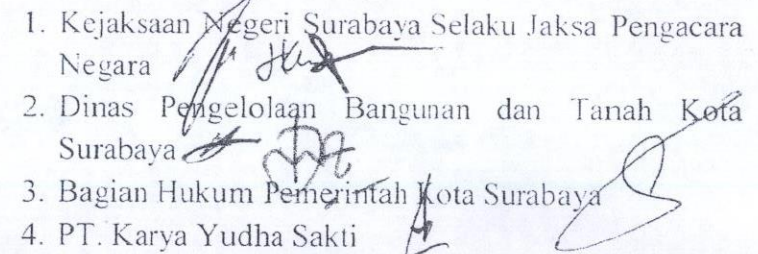 1. Kejaksaan Negeri Surabaya Selaku Jaksa Pengacara
Negara
2. Dinas Pengelolaan Bangunan dan Tanah Kota
Surabaya
3. Bagian Hukum Pemerintah Kota Surabaya
4. PT. Karya Yudha Sakti